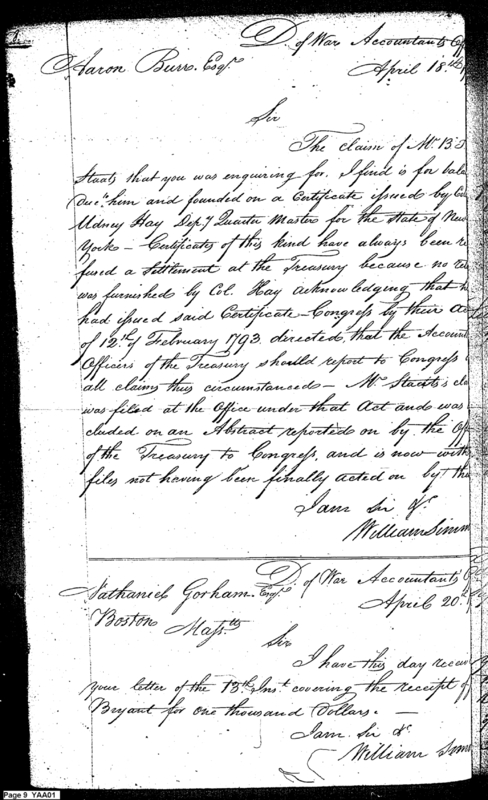 D. of War Accountants Off
Aaron Burr. Esqr. April 18th
Sir
The claim of Mr. B
Staats that you was enquiring for. I find is for bala
due him and founded on a Certificate issued by Co
Udney Hay Depy. Quarter Master for the State of New
York — Certificates of this kind have always been re
fused a Settlement at the Treasury because no
was furnished by Col. Hay acknowledging that h
had issued said Certificate — Congress by their Ac
of 12th of February 1793 directed, that the Account
Officers of the Treasury should report to Congress
all claims thus circumstanced — Mr. Staats's cla
was filed at the Office under that Act and was
cluded on an Abstract reported on by the Off
of the Treasury to Congress, and is now with
files not having been finally acted on by tha
I am Sir &.
William Simm
D. of War Accountants O
Nathaniel Gorham. Esqr. April 20th
Boston
Massts.
Sir
I have this day recei
your letter of the 13th Inst. covering the receipt of
Bryant for one thousand Dollars. —
I am Sir &.
William Simm
Page 9 YAA01